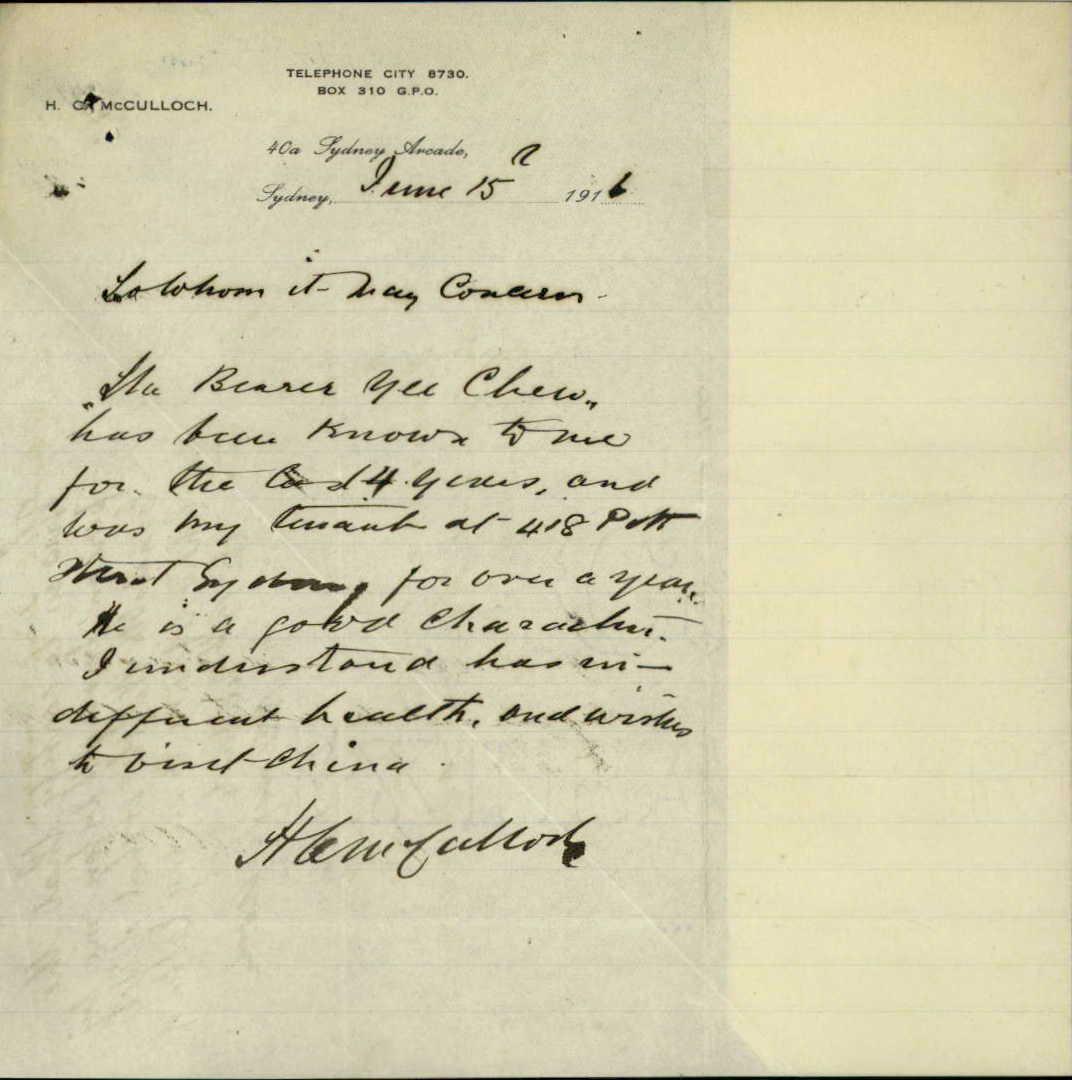 TELEPHONE CITY 8730.
BOX 310 G.P.O.
H. C. McCULLOCH.
40a Sydney Arcade,
Sydney, June 15 1916
To Whom it May Concern
The Bearer "Yee Chew"
has been Known to me
for the last 4 years, and
was my tenant at 418 Pitt
Street Sydney for over a year.
He is a good Character.
I understand has in-
different health, and wishes
to visit China.
H C McCulloch